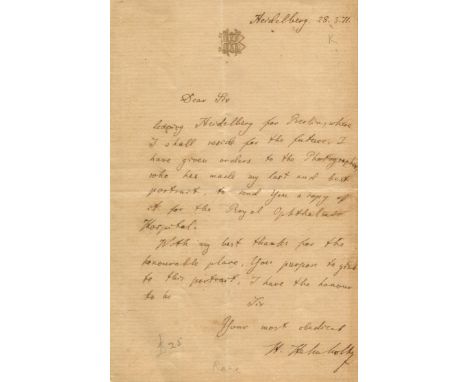 Heidelberg 28.3.71
K
Dear Sir
leaving Heidelberg for Berlin, where
I shall reside for the future, I
have given orders to the Photographer
who has made my last and best
portrait, to send you a copy of
it for the Royal Ophthalmic
Hospital.
With my best thanks for the
honourable place, You purpose to give
to this portrait, I have the honour
to be
Sir
Your most obedient
H. Helmholtz
£25
Rare